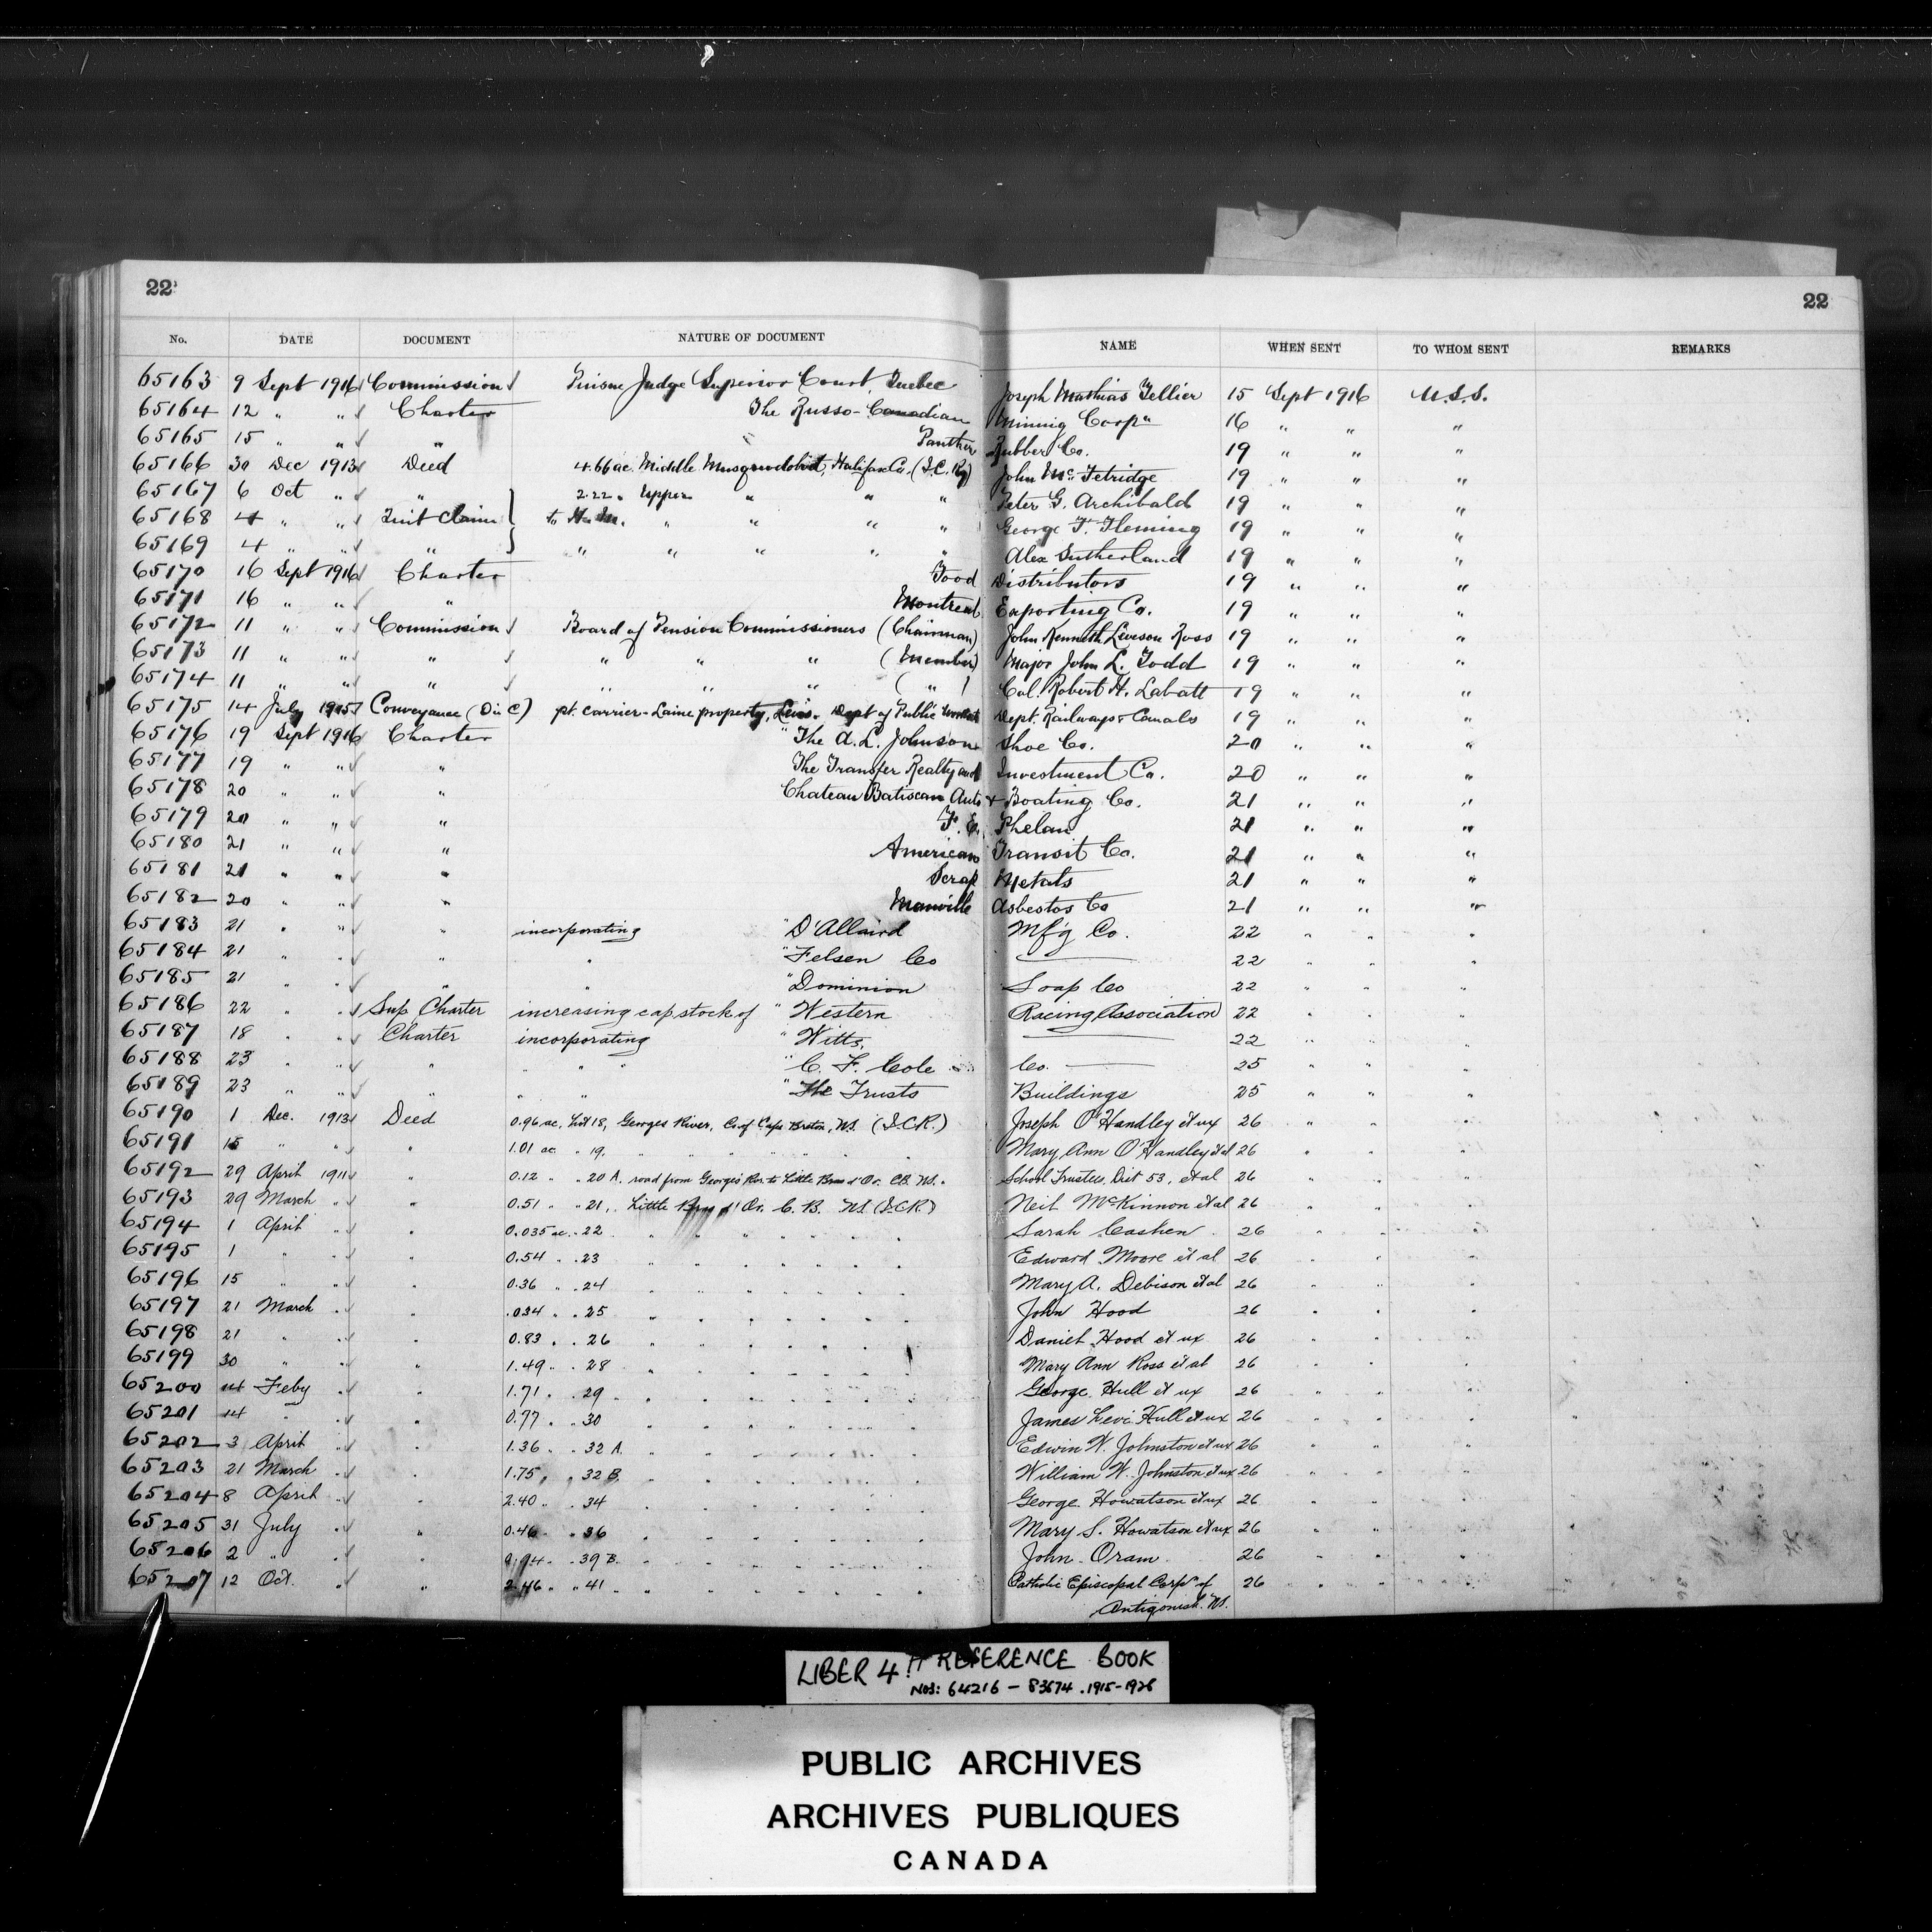 22 22
No. DATE DOCUMENT NATURE OF DOCUMENT NAME WHEN SENT TO WHOM SENT REMARKS
65163 9 Sept 1916 Commission Puisne Judge Superior Court, Quebec Joseph Mathias Tellier 15 Sept 1916 U.S.S.
65164 12 " " Charter The Russo-Canadian Mining Corpn 16 " " "
65165 15 " " " Panther Rubber Co. 19 " " "
65166 30 Dec 1913 Deed 4.66 ac. Middle Musquodoboit, Halifax Co. (I.C. Ry) John Mc. Fetridge 19 " " "
65167 6 Oct " " 2.22 " Upper " " " Peter G. Archibald 19 " " "
65168 4 " " Quit Claim to H. M. " " " " George F. Fleming 19 " " "
65169 4 " " " " " " " " Alex Sutherland 19 " " "
65170 16 Sept 1916 Charter Food Distributors 19 " " "
65171 16 " " " Montreal Exporting Co. 19 " " "
65172 11 " " Commission Board of Pension Commissioners (Chairman) John Kenneth Leveson Ross 19 " " "
65173 11 " " " " " " (Member) Major John L. Todd 19 " " "
65174 11 " " " " " " ( " ) Col. Robert H. Labatt 19 " " "
65175 14 July 1915 Conveyance (O in C) pt. Carrier-Laine property, Levis. Dept of Public Works to Dept. Railways & Canals 19 " " "
65176 19 Sept 1916 Charter " The A. L. Johnson Shoe Co. 20 " " "
65177 19 " " " The Transfer Realty and Investment Co. 20 " " "
65178 20 " " " Chateau Batiscan Auto & Boating Co. 21 " " "
65179 20 " " " F. E. Phelan 21 " " "
65180 21 " " " American Transit Co. 21 " " "
65181 21 " " " Scrap Metals 21 " " "
65182 20 " " " Manville Asbestos Co 21 " " "
65183 21 " " " incorporating " D'Allaird Mf'g Co. 22 " " "
65184 21 " " " " " Felsen Co 22 " " "
65185 21 " " " " " Dominion Soap Co 22 " " "
65186 22 " " Sup Charter increasing cap stock of " Western Racing Association 22 " " "
65187 18 " " Charter incorporating " Witts. 22 " " "
65188 23 " " " " " C. F. Cole Co. 25 " " "
65189 23 " " " " " The Trusts Buildings 25 " " "
65190 1 Dec. 1913 Deed 0.96 ac, Lot 18, Georges River, Co. of Cape Breton, N.S. (I.C.R.) Joseph O'Handley et ux 26 " " "
65191 15 " " " 1.01 ac. " 19, " " " " " Mary Ann O'Handley et al 26 " " "
65192 29 April 1911 " 0.12 " " 20 A. road from Georges Riv. to Little Bras d'Or. C.B. N.S. " School Trustees, Dist 53, et al 26 " " "
65193 29 March " " 0.51 " " 21, Little Bras d'Or. C. B. N.S. (I.C.R.) Neil McKinnon et al 26 " " "
65194 1 April " " 0.035 ac. " 22 " " " " " Sarah Cashen 26 " " "
65195 1 " " " 0.54 " " 23 " " " " " Edward Moore et al 26 " " "
65196 15 " " " 0.36 " " 24 " " " " " Mary A. Debison et al 26 " " "
65197 21 March " " .034 " " 25 " " " " " John Hood 26 " " "
65198 21 " " " 0.83 " " 26 " " " " " Daniel Hood et ux 26 " " "
65199 30 " " " 1.49 " " 28 " " " " " Mary Ann Ross et al 26 " " "
65200 14 Feby " " 1.71 " " 29 " " " " " George Hull et ux 26 " " "
65201 14 " " " 0.77 " " 30 " " " " " James Levi Hull et ux 26 " " "
65202 3 April " " 1.36 " " 32 A. " " " " " Edwin W. Johnston et ux 26 " " "
65203 21 March " " 1.75 " " 32 B. " " " " " William W. Johnston et ux 26 " " "
65204 8 April " " 2.40 " " 34 " " " " " George Howatson et ux 26 " " "
65205 31 July " " 0.46 " " 36 " " " " " Mary S. Howatson et ux 26 " " "
65206 2 " " " " 39 B. " " " " " John Oram 26 " " "
65207 12 Oct. " " 2.46 " " 41 " " " " " Catholic Episcopal Corpn of 26 " " "
Antigonish. N.S.
LIBER 4 REFERENCE BOOK
NOS: 64216 - 83674 . 1915-1926
PUBLIC ARCHIVES
ARCHIVES PUBLIQUES
CANADA